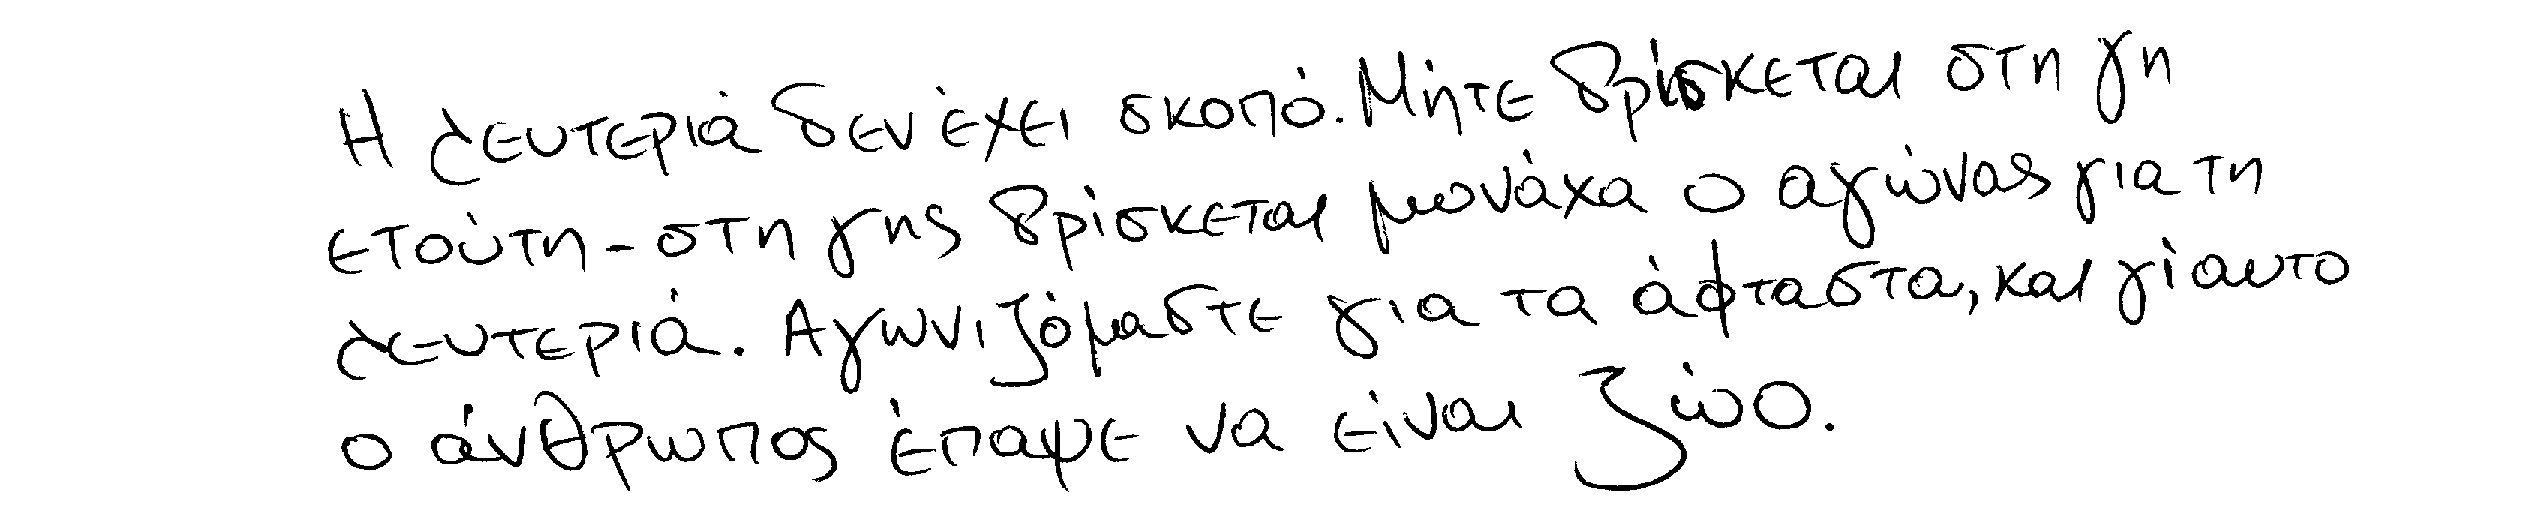 Η λευτεριά δεν έχει σκοπό. Μήτε βρίσκεται στη γη
ετούτη - στη γης βρίσκεται μονάχα ο αγώνας για τη
λευτεριά. Αγωνιζόμαστε για τα άφταστα, και γι αυτο
ο άνθρωπος έπαψε να είναι ζώο.